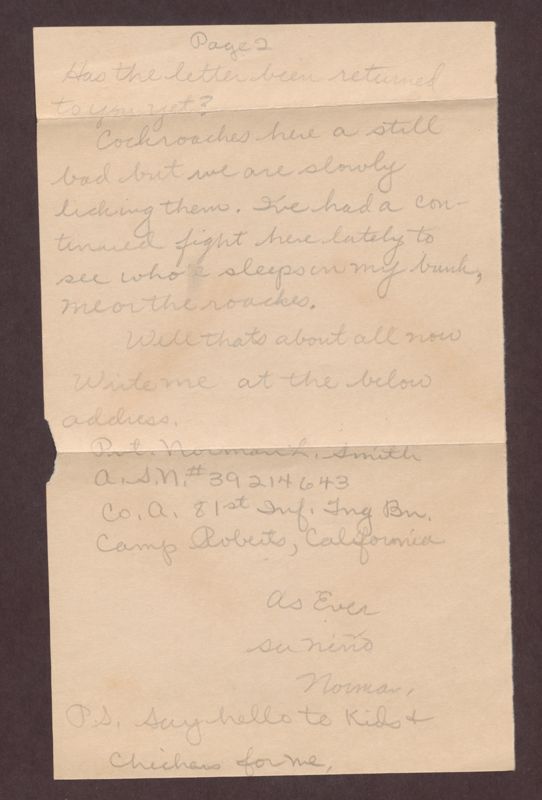 Page 2
Has the letter been returned
to you yet?
Cockroaches here a still
bad but we are slowly
licking them. I've had a con-
tinued fight here lately to
see who sleeps in my bunk,
me or the roaches.
Well thats about all now
Write me at the below
address.
Pvt. Norman L. Smith
A.S.N. # 39214643
Co. A. 81st Inf. Tng Bn.
Camp Roberts, California
As Ever
su niño
Norman,
P.S. Say hello to Kids +
for me.